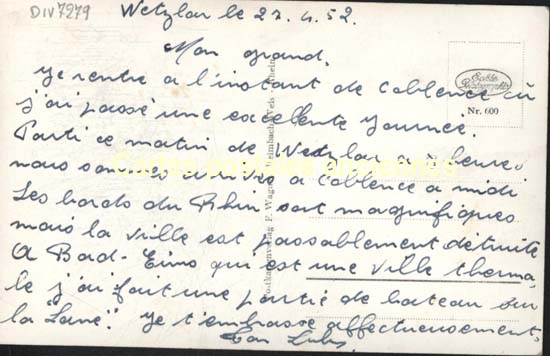 DIV7279
Wetzlar le 27.4.52.
Mon grand.
Je rentre à l'instant de Coblence où
j'ai passé une excellente journée.
Parti ce matin de Wetzlar à heures
nous sommes arrivés à Coblence à midi
Les bords du Rhin sont magnifiques
mais la ville est passablement détruite
A Bad-Eims qui est une ville therma
le j'ai fait une partie de bateau sur
la "Lane". Je t'embrasse affectueusement.
Ton
Echte Photographie
Nr. 600
Postkartenverlag F. Wagner Heimbach-Weis - Rhein
Cartes postales anciennes